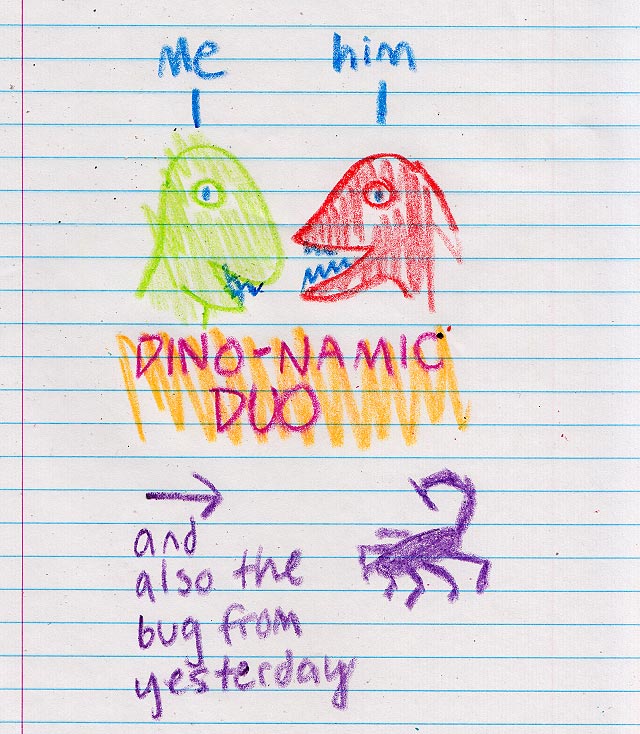 me
him
DINO-NAMIC
DUO
and
also the
bug from
yesterday